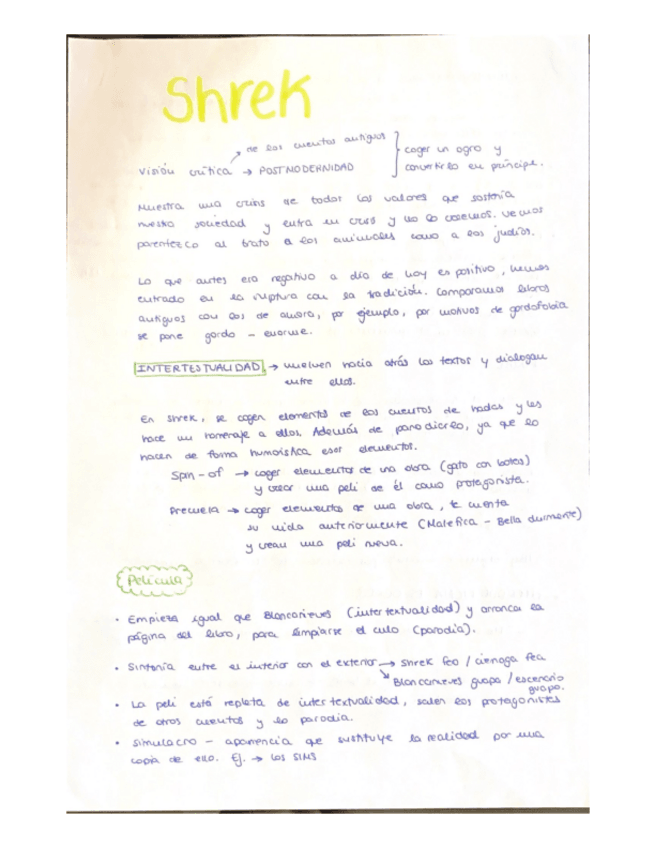 Shrek
de los cuentos antiguos
Visión crítica → POSTMODERNIDAD
coger un ogro y
convertirlo en príncipe.
Muestra una crisis de todos los valores que sostenía
nuestra sociedad y entra en crisis y no lo creemos. Vemos
parentezco al trato a los animales como a los judíos.
Lo que antes era negativo a día de hoy es positivo, hemos
entrado en la ruptura con la tradición. Comparamos libros
antiguos con los de ahora, por ejemplo, por motivos de gordofobia
se pone gordo - enorme.
INTERTESTUALIDAD → vuelven hacia atrás los textos y dialogan
entre ellos.
En Shrek, se cogen elementos de los cuentos de hadas y les
hace un homenaje a ellos. Además de parodicrlo, ya que lo
hacen de forma humoística esos elementos.
Spin-of → coger elementos de una obra (gato con botas)
y crear una peli de él como protagonista.
Precuela → coger elementos de una obra, te cuenta
su vida anteriormente (Malefica - Bella durmiente)
y crean una peli nueva.
Película
• Empieza igual que Blancanieves (intertextualidad) y arranca la
página del libro, para limpiarse el culo (parodia).
• Sintonía entre el interior con el exterior → Shrek feo / ciénaga fea
Blancanieves guapa / escenario
guapo.
• La peli está repleta de intertextualidad, salen los protagonistas
de otros cuentos y lo parodia.
• Simulacro - apariencia que sustituye la realidad por una
copia de ello. Ej. → Los SIMS